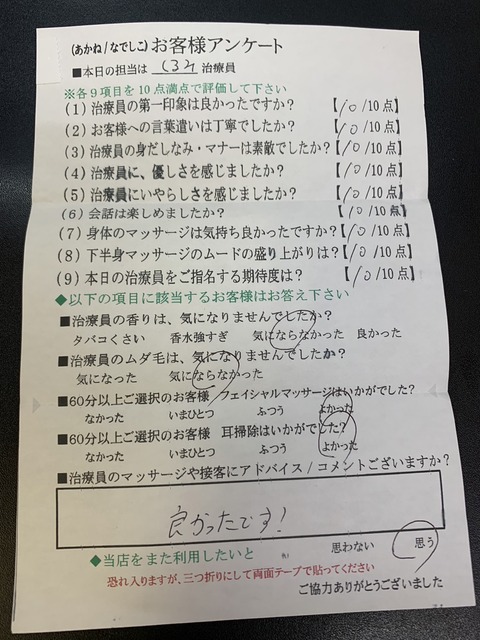 (あかね/なでしこ)お客様アンケート
■本日の担当は 治療員
※各9項目を10点満点で評価して下さい
(1)治療員の第一印象は良かったですか？【10/10点】
(2)お客様への言葉遣いは丁寧でしたか？【10/10点】
(3)治療員の身だしなみ・マナーは素敵でしたか？【10/10点】
(4)治療員に、優しさを感じましたか？【10/10点】
(5)治療員にいやらしさを感じましたか？【10/10点】
(6)会話は楽しめましたか？【10/10点】
(7)身体のマッサージは気持ち良かったですか？【10/10点】
(8)下半身マッサージのムードの盛り上がりは？【10/10点】
(9)本日の治療員をご指名する期待度は？【10/10点】
◆以下の項目に該当するお客様はお答え下さい
■治療員の香りは、気になりませんでしたか？
タバコくさい 香水強すぎ 気にならなかった 良かった
■治療員のムダ毛は、気になりませんでしたか？
気になった 気にならなかった
■60分以上ご選択のお客様 フェイシャルマッサージはいかがでした？
なかった いまひとつ ふつう よかった
■60分以上ご選択のお客様 耳掃除はいかがでした？
なかった いまひとつ ふつう よかった
■治療員のマッサージや接客にアドバイス/コメントございますか？
良かったです！
◆当店をまた利用したいと 思わない 思う
恐れ入りますが、三つ折りにして両面テープで貼ってください
ご協力ありがとうございました